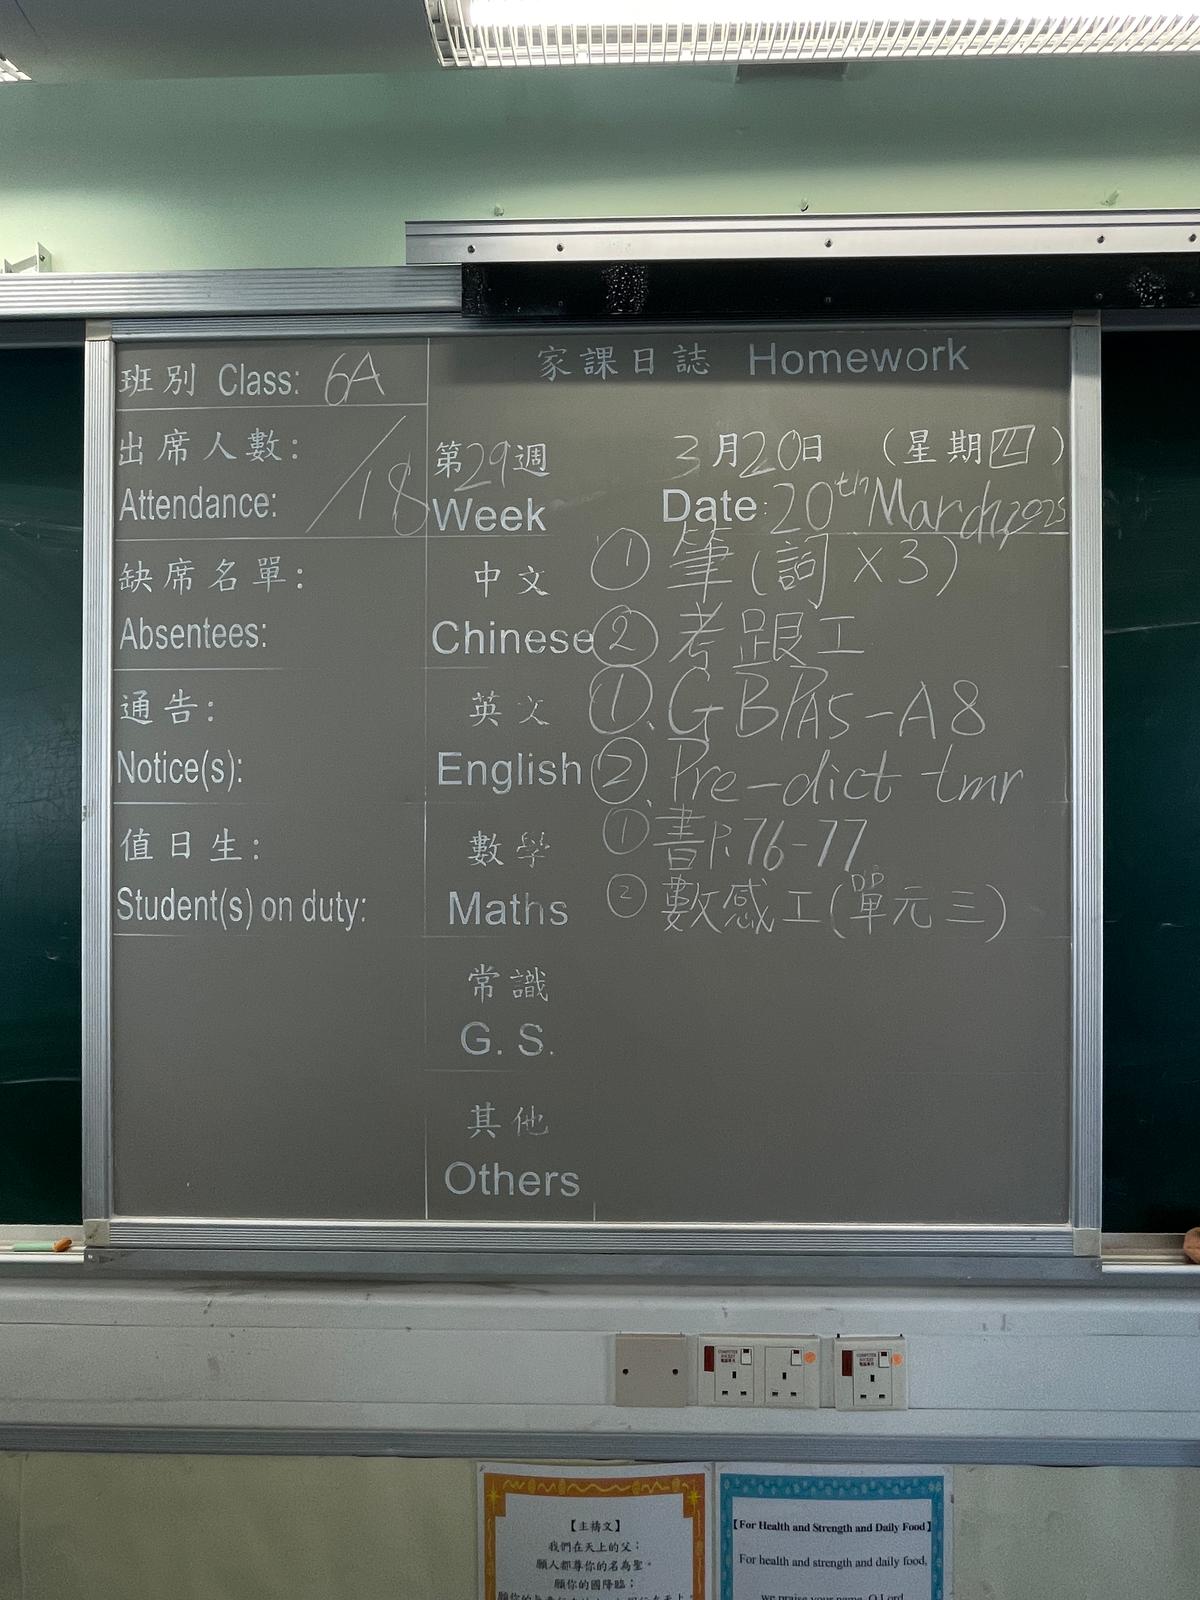 家課日誌 Homework
班別 Class: 6A
出席人數:
Attendance: /18
缺席名單:
Absentees:
通告:
Notice(s):
值日生:
Student(s) on duty:
第29週 3月20日 (星期四)
Week Date: 20th March, 2025
中文 ① 筆(詞×3)
Chinese ② 考跟工
英文 ①. GB PA5-A8
English ②. Pre-dict tmr
數學 ① 書P.76-77
Maths ② 數感工(單元三)
常識
G. S.
其他
Others
【主禱文】
我們在天上的父:
願人都尊你的名為聖。
願你的國降臨;
【For Health and Strength and Daily Food】
For health and strength and daily food,
we praise your name, O Lord